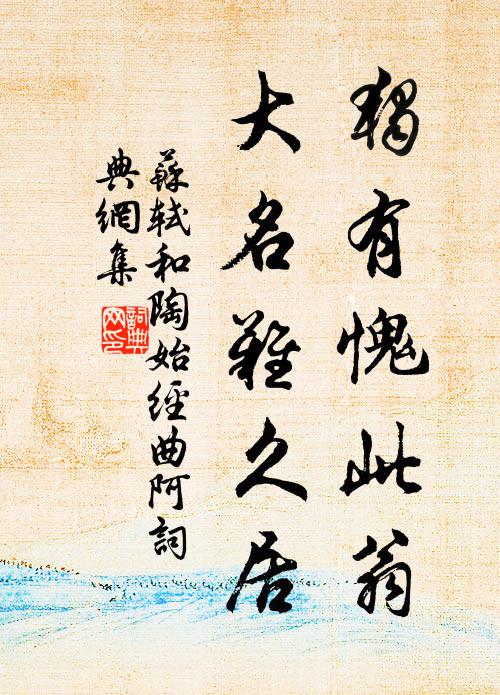 獨有愧此翁
大名難久居
蘇軾和陶始經曲阿詞
典網集
詞典
网印